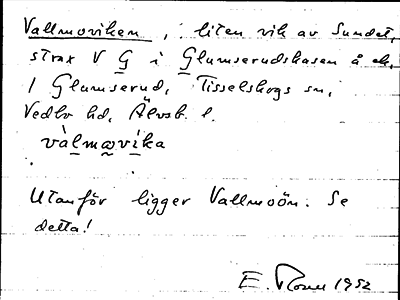 Vallmoviken, liten vik av Sundet,
strax V G i Glumserudshasen å ek.
1 Glumserud, Tisselskogs sn,
Vedbo hd, Älvsb. l.
válmavika
Utanför ligger Vallmoön. Se
detta!
E. 1952